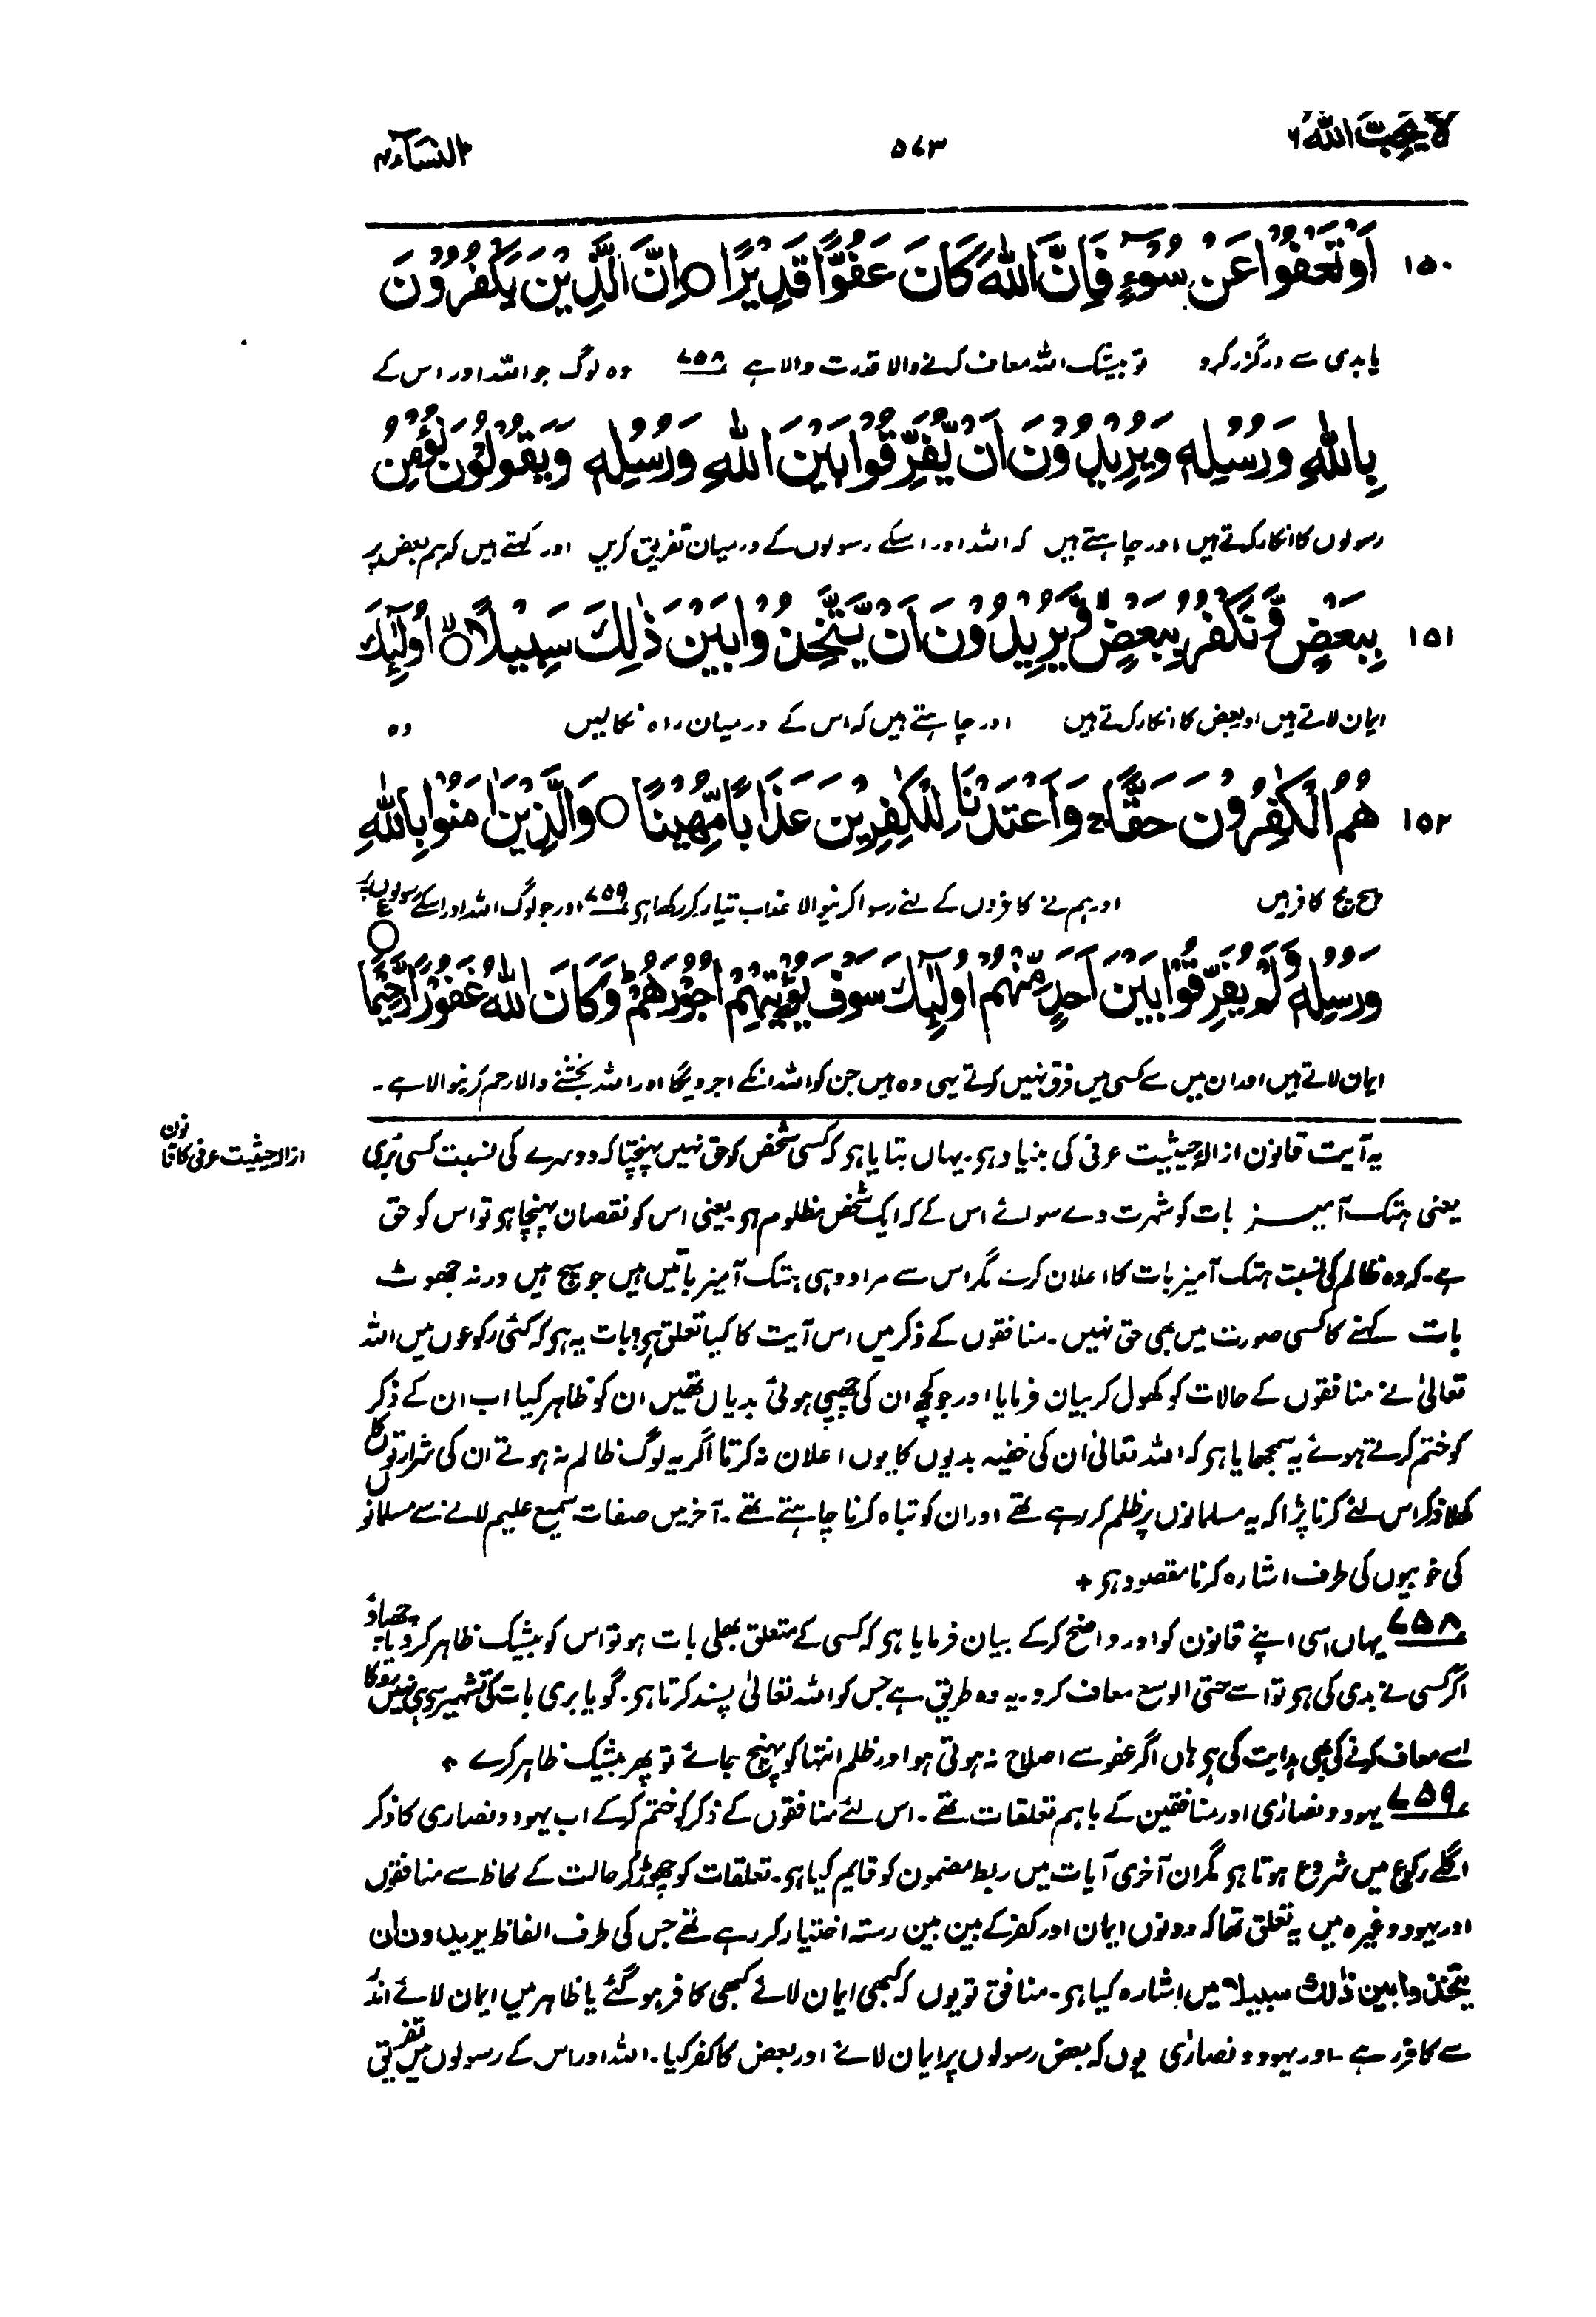 لا یحب اللہ ۶
۵۷۳
النساء ۴
۱۵۰ اَوْ تَعْفُوْا عَنْ سُوْٓءٍ فَاِنَّ اللّٰهَ كَانَ عَفُوًّا قَدِيْرًا ○ اِنَّ الَّذِيْنَ يَكْفُرُوْنَ
یا بدی سے درگزر کرو تو بیشک اللہ معاف کرنے والا قدرت والا ہے ۷۵۸ وہ لوگ جو اللہ اور اس کے
بِاللّٰهِ وَرُسُلِهٖ وَيُرِيْدُوْنَ اَنْ يُّفَرِّقُوْا بَيْنَ اللّٰهِ وَرُسُلِهٖ وَيَقُوْلُوْنَ نُؤْمِنُ
رسولوں کا انکار کرتے ہیں اور چاہتے ہیں کہ اللہ اور اسکے رسولوں کے درمیان تفریق کریں اور کہتے ہیں کہ ہم بعض پر
۱۵۱ بِبَعْضٍ وَّنَكْفُرُ بِبَعْضٍ وَّيُرِيْدُوْنَ اَنْ يَّتَّخِذُوْا بَيْنَ ذٰلِكَ سَبِيْلًا ○ اُولٰٓئِكَ
ایمان لاتے ہیں اور بعض کا انکار کرتے ہیں اور چاہتے ہیں کہ اس کے درمیان راہ نکالیں وہ
۱۵۲ هُمُ الْكٰفِرُوْنَ حَقًّا ۚ وَاَعْتَدْنَا لِلْكٰفِرِيْنَ عَذَابًا مُّهِيْنًا ○ وَالَّذِيْنَ اٰمَنُوْا بِاللّٰهِ
سچ مچ کافر ہیں اور ہم نے کافروں کے لئے رسوا کرنیوالا عذاب تیار کر رکھا ہے ۷۵۹ اور جو لوگ اللہ اور اسکے رسولوں پر
وَرُسُلِهٖ وَلَمْ يُفَرِّقُوْا بَيْنَ اَحَدٍ مِّنْهُمْ اُولٰٓئِكَ سَوْفَ يُؤْتِيْهِمْ اُجُوْرَهُمْ ؕ وَكَانَ اللّٰهُ غَفُوْرًا رَّحِيْمًا ○ ع
ایمان لاتے ہیں اور ان میں سے کسی میں فرق نہیں کرتے یہی وہ ہیں جن کو اللہ انکے اجر دیگا اور اللہ بخشنے والا رحم کرنیوالا ہے۔
ازالہ حیثیت عرفی کا قانون
یہ آیت قانون ازالۂ حیثیت عرفی کی بنیاد ہے۔ یہاں بتایا ہے کہ کسی شخص کو حق نہیں پہنچتا کہ دوسرے کی نسبت کسی بُری
یعنی ہتک آمیز بات کو شہرت دے سوائے اس کے کہ ایک شخص مظلوم ہو یعنی اس کو نقصان پہنچا ہو تو اس کو حق
ہے۔ کہ وہ ظالم کی نسبت ہتک آمیز بات کا اعلان کرے مگر اس سے مراد وہی ہتک آمیز باتیں ہیں جو سچ ہیں ورنہ جھوٹ
بات کہنے کا کسی صورت میں بھی حق نہیں۔ منافقوں کے ذکر میں اس آیت کا کیا تعلق ہے؟ بات یہ ہے کہ کئی رکوعوں میں اللہ
تعالیٰ نے منافقوں کے حالات کو کھول کر بیان فرمایا اور جو کچھ ان کی چھپی ہوئی بدیاں تھیں ان کو ظاہر کیا اب ان کے ذکر
کو ختم کرتے ہوئے یہ سمجھایا ہے کہ اللہ تعالیٰ ان کی خفیہ بدیوں کا یوں اعلان نہ کرتا اگر یہ لوگ ظالم نہ ہوتے ان کی شرارتوں کا
کھلا ذکر اس لئے کرنا پڑا کہ یہ مسلمانوں پر ظلم کر رہے تھے اور ان کو تباہ کرنا چاہتے تھے۔ آخر میں صفات سمیع علیم لانے سے مسلمانوں
کی خوبیوں کی طرف اشارہ کرنا مقصود ہے +
۷۵۸ یہاں اسی اپنے قانون کو اور واضح کرکے بیان فرمایا ہے کہ کسی کے متعلق بھلی بات ہو تو اس کو بیشک ظاہر کرو یا چھپاؤ
اگر کسی نے بدی کی ہو تو اسے حتی الوسع معاف کرو۔ یہ وہ طریق ہے جس کو اللہ تعالیٰ پسند کرتا ہے۔ گویا بری بات کی تشہیر سے ہی نہیں روکا
اسے معاف کرنے کی بھی ہدایت کی ہے ہاں اگر عفو سے اصلاح نہ ہوتی ہو اور ظلم انتہا کو پہنچ جائے تو پھر بیشک ظاہر کرے +
۷۵۹ یہود و نصاریٰ اور منافقین کے باہم تعلقات تھے۔ اس لئے منافقوں کے ذکر کو ختم کرکے اب یہود و نصاریٰ کا ذکر
اگلے رکوع میں شروع ہوتا ہے مگر ان آخری آیات میں ربط مضمون کو قایم کیا ہے۔ تعلقات کو چھوڑ کر حالت کے لحاظ سے منافقوں
اور یہود وغیرہ میں یہ تعلق تھا کہ دونوں ایمان اور کفر کے بین بین رستہ اختیار کر رہے تھے جس کی طرف الفاظ یریدون ان
یتخذوا بین ذٰلک سبیلا میں اشارہ کیا ہے۔ منافق تو یوں کہ کبھی ایمان لائے کبھی کافر ہوگئے یا ظاہر میں ایمان لائے اندر
سے کافر رہے۔ اور یہود و نصاریٰ یوں کہ بعض رسولوں پر ایمان لائے اور بعض کا کفر کیا۔ اللہ اور اس کے رسولوں میں تفریق